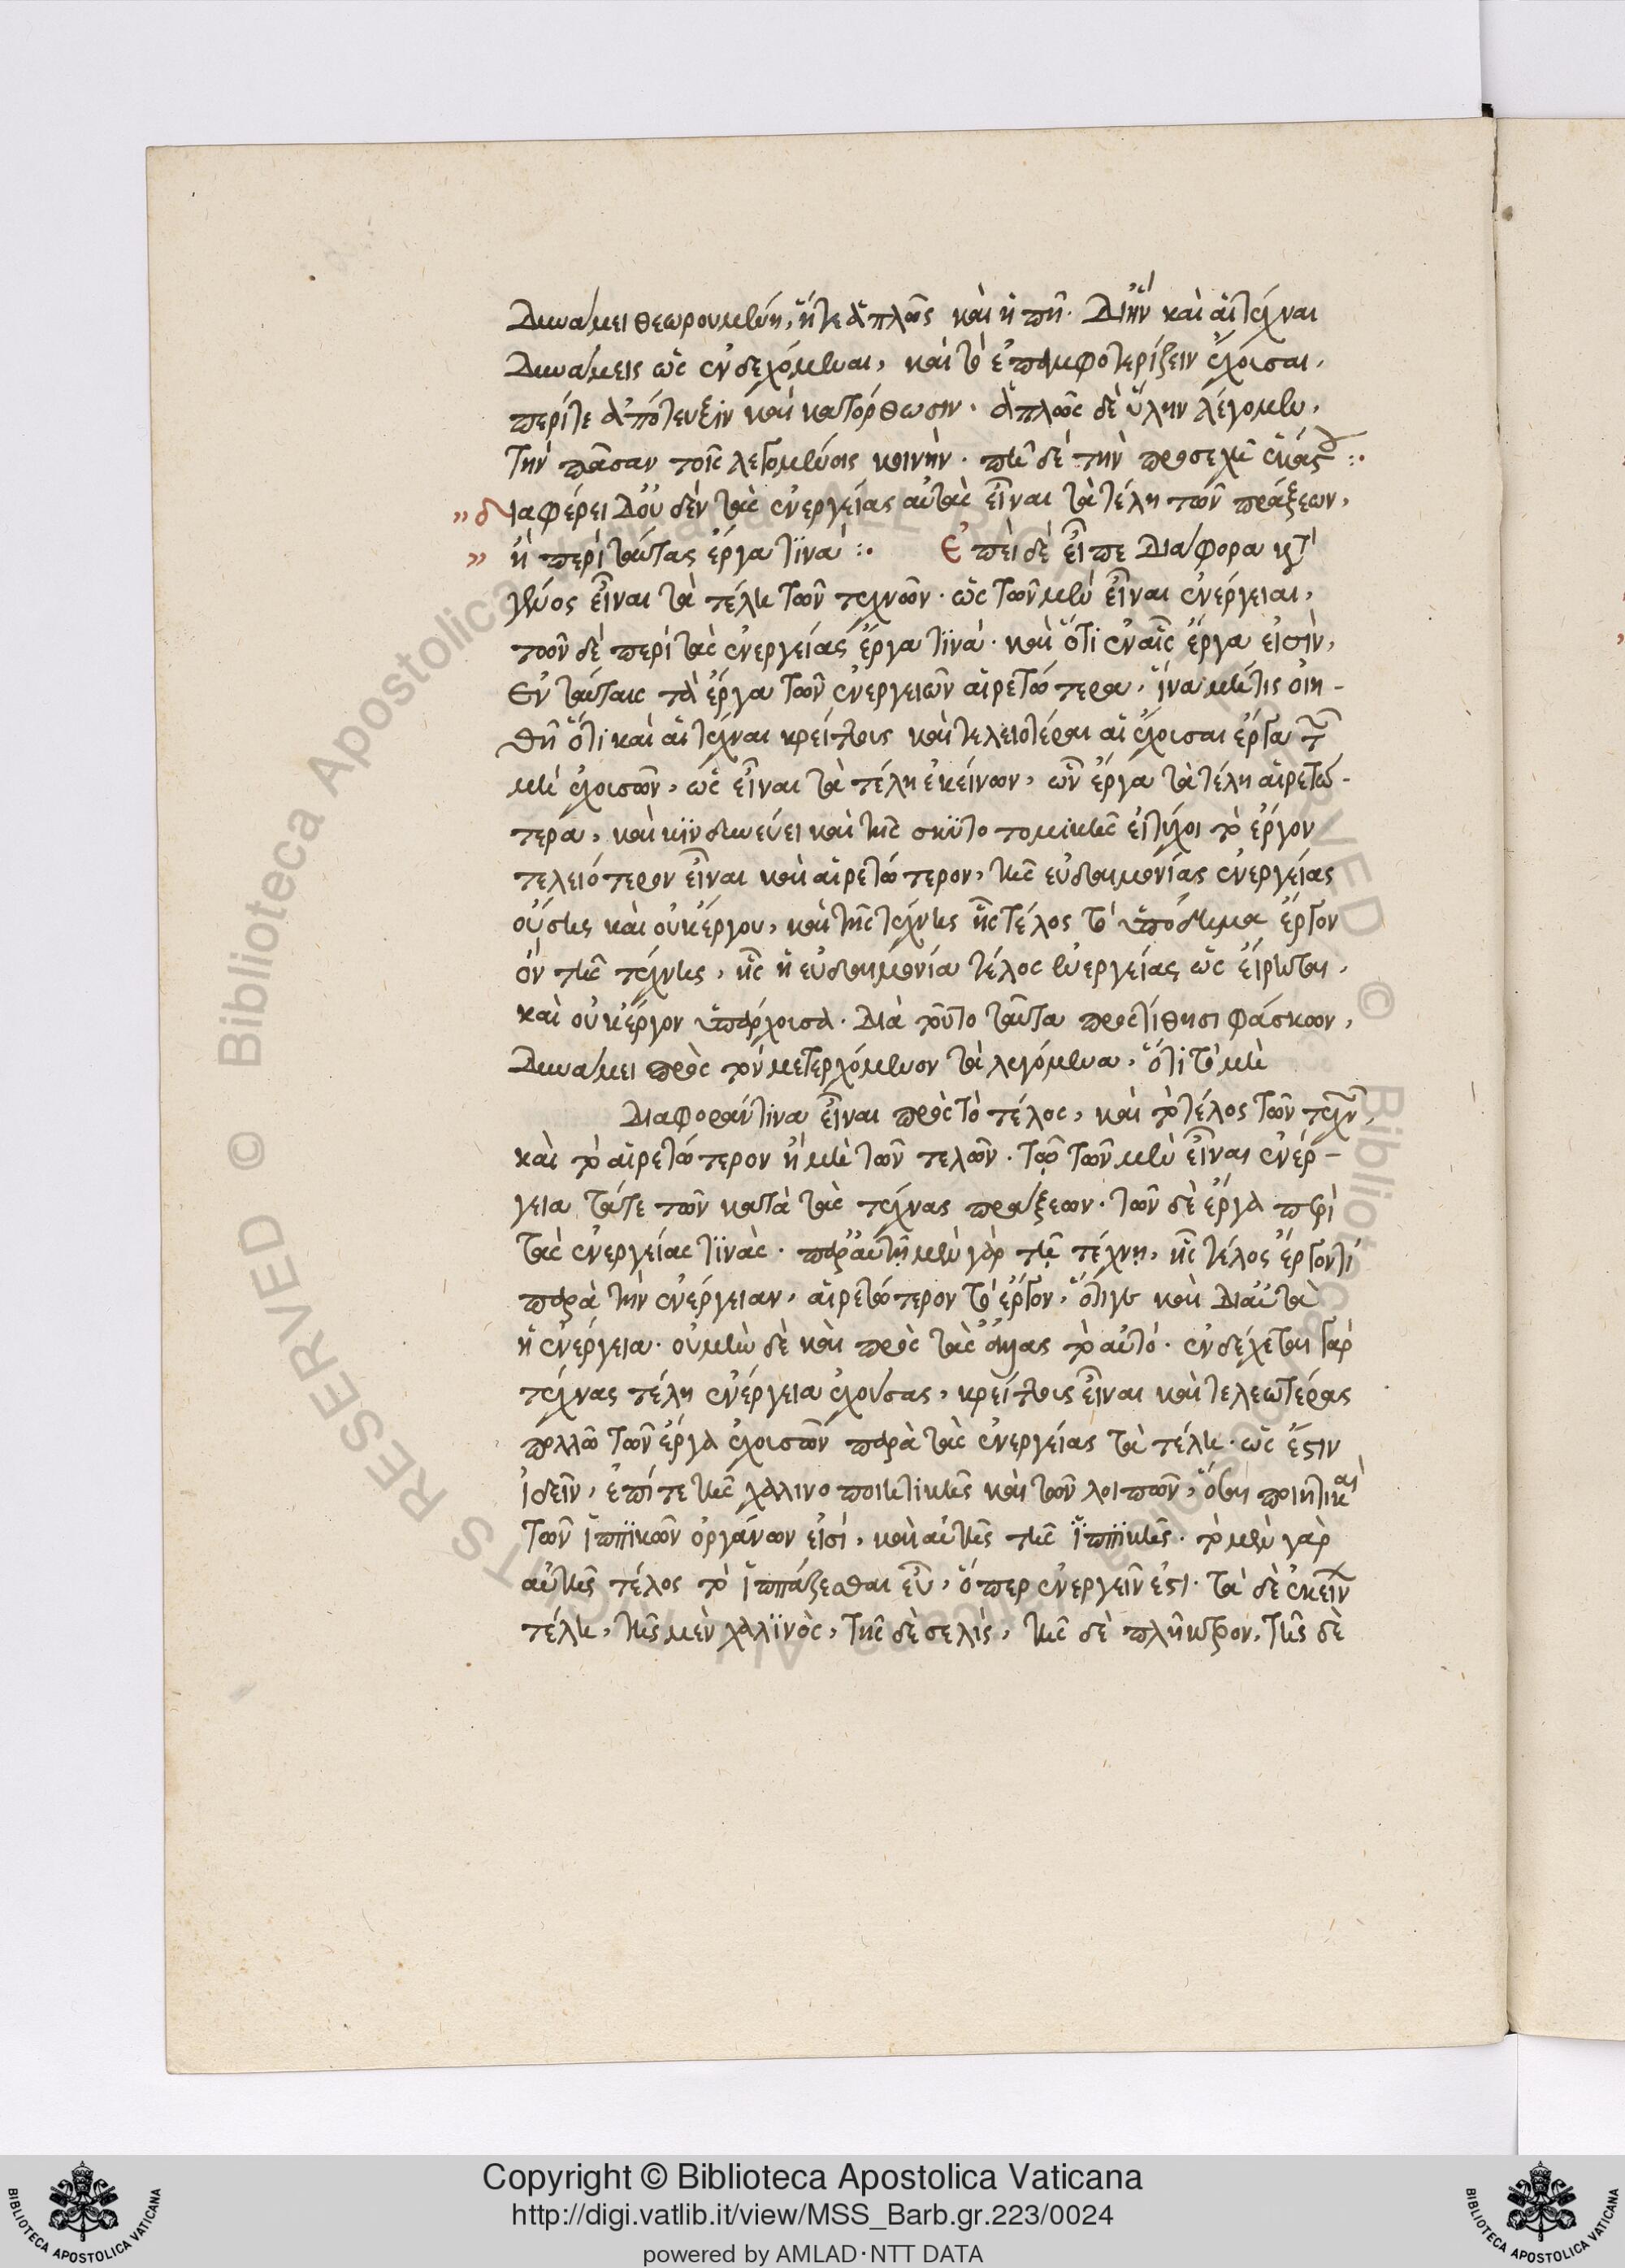 δυνάμει θεωρουμένη, ἥτε ἁπλῶς καὶ ἡ πῆ. δι' ἣν καὶ αἱ τέχναι
δυνάμεις ὡς ἐνδεχόμεναι, καὶ τὸ ἐπαμφοτερίζειν ἔχουσαι,
περί τε ἀπότευξιν καὶ κατόρθωσιν. ἁπλῶς δὲ ὕλην λέγομεν,
τὴν πᾶσαν τοῖς λεγομένοις κοινήν. πῆ δὲ τὴν προσεχῆ ἑκάστ :.
" διαφέρει δ' οὐδὲν τὰς ἐνεργείας αὐτὰς εἶναι τὰ τέλη τῶν πράξεων,
" ἢ περὶ ταύτας ἔργα τινά :. Ἐπεὶ δὲ εἶπε διάφορα κατὰ
γένος εἶναι τὰ τέλη τῶν τεχνῶν. ὡς τῶν μὲν εἶναι ἐνέργειαι,
τῶν δὲ περὶ τὰς ἐνεργείας ἔργα τινά. καὶ ὅτι ἐν αἷς ἔργα εἰσὶν,
ἐν ταύταις τὰ ἔργα τῶν ἐνεργειῶν αἱρετώτερα, ἵνα μή τις οἰη-
θῆ ὅτι καὶ αἱ τέχναι κρείττους καὶ τελειότεραι αἱ ἔχουσαι ἔργα τῶν
μὴ ἐχουσῶν, ὡς εἶναι τὰ τέλη ἐκείνων, ὧν ἔργα τὰ τέλη αἱρετώ-
τερα, καὶ κινδυνεύει καὶ τῆς σκυτοτομικῆς εἰ τύχοι τὸ ἔργον
τελειότερον εἶναι καὶ αἱρετώτερον, τῆς εὐδαιμονίας ἐνεργείας
οὔσης καὶ οὐκ ἔργου, καὶ τῆς τέχνης ἧς τέλος τὸ ὑπόδημα ἔργον
ὂν τῆς τέχνης, ἧς ἡ εὐδαιμονία τέλος ἐνεργείας ὡς εἴρηται,
καὶ οὐκ ἔργον ὑπάρχουσα. διὰ τοῦτο ταῦτα προστίθησι φάσκων,
δυνάμει πρὸς τὸν μετερχόμενον τὰ λεγόμενα, ὅτι τὸ μὲ
διαφοράν τινα εἶναι πρὸς τὸ τέλος, καὶ τὸ τέλος τῶν τεχνῶν,
καὶ τὸ αἱρετώτερον ἢ μὴ τῶν τελῶν. τῷ τῶν μὲν εἶναι ἐνέρ-
γεια τά τε τῶν κατὰ τὰς τέχνας πράξεων. τῶν δὲ ἔργα περὶ
τὰς ἐνεργείας τινὰς. παρ' αὐτῇ μὲν γὰρ τῇ τέχνῃ, ἧς τέλος ἔργον τὶ
παρὰ τὴν ἐνέργειαν, αἱρετώτερον τὸ ἔργον, ὅτι γε καὶ δι' αὐτὰ
ἡ ἐνέργεια. οὐ μὴν δὲ καὶ πρὸς τὰς ἄλλας τὸ αὐτό. ἐνδέχεται γὰρ
τέχνας τέλη ἐνέργεια ἐχούσας, κρείττους εἶναι καὶ τελεωτέρας
πολλῷ τῶν ἔργα ἐχουσῶν παρὰ τὰς ἐνεργείας τὰ τέλη. ὡς ἔστιν
ἰδεῖν, ἐπί τε τῆς χαλινοποιητικῆς καὶ τῶν λοιπῶν, ὅσαι ποιητικαὶ
τῶν ἱππικῶν ὀργάνων εἰσί, καὶ αὐτῆς τῆς ἱππικῆς. τὸ μὲν γὰρ
αὐτῆς τέλος τὸ ἱππάζεσθαι εὖ, ὅπερ ἐνεργεῖν ἐστι. τὰ δὲ ἐκείνων
τέλη, τῆς μὲν χαλινὸς, τῆς δὲ σελὶς, τῆς δὲ πλῆκτρον, τῆς δὲ
Copyright © Biblioteca Apostolica Vaticana
http://digi.vatlib.it/view/MSS_Barb.gr.223/0024
powered by AMLAD·NTT DATA